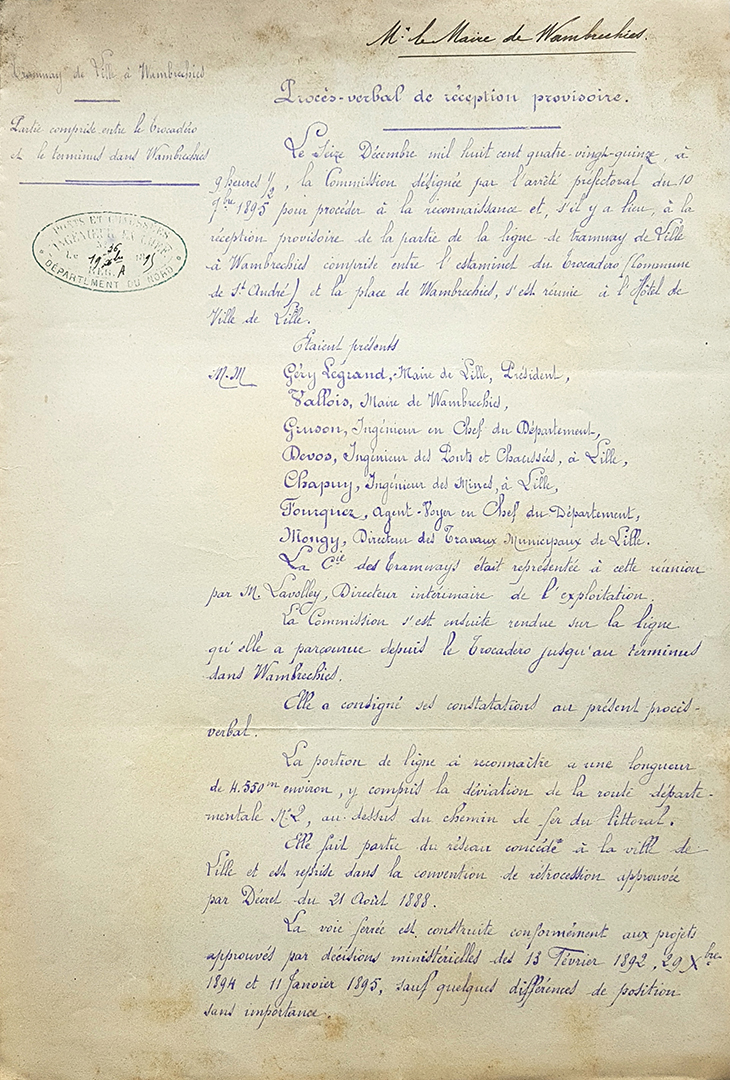 Mr le Maire de Wambrechies.
Tramway de Lille à Wambrechies
Partie comprise entre le Trocadéro
et le terminus dans Wambrechies
PONTS ET CHAUSSÉES
INGÉNIEUR EN CHEF
Le 19 Xbre 1895
REG. A
DÉPARTEMENT DU NORD
Procès-verbal de réception provisoire.
Le Seize Décembre mil huit cent quatre-vingt-quinze, à
9 heures 1/2, la Commission désignée par l'arrêté préfectoral du 10
7bre 1895 pour procéder à la reconnaissance et, s'il y a lieu, à la
réception provisoire de la partie de la ligne de tramway de Lille
à Wambrechies comprise entre l'estaminet du Trocadéro (Commune
de St André) et la place de Wambrechies, s'est réunie à l'Hôtel de
Ville de Lille.
Étaient présents
M.M. Géry Legrand, Maire de Lille, Président,
Vallois, Maire de Wambrechies,
Gruson, Ingénieur en Chef du Département,
Devos, Ingénieur des Ponts et Chaussées, à Lille,
Chapuy, Ingénieur des Mines, à Lille,
Fourquez, Agent-Voyer en Chef du Département,
Mongy, Directeur des Travaux Municipaux de Lille.
La Cie des Tramways était représentée à cette réunion
par M. Lavolley, Directeur intérimaire de l'exploitation.
La Commission s'est ensuite rendue sur la ligne
qu'elle a parcourue depuis le Trocadéro jusqu'au terminus
dans Wambrechies.
Elle a consigné ses constatations au présent procès-
verbal.
La portion de ligne à reconnaître a une longueur
de 4.550m environ, y compris la déviation de la route départe-
mentale N°2, au-dessus du chemin de fer du littoral.
Elle fait partie du réseau concédé à la ville de
Lille et est reprise dans la convention de rétrocession approuvée
par Décret du 21 Août 1888.
La voie ferrée est construite conformément aux projets
approuvés par décisions ministérielles des 13 Février 1892, 29 Xbre
1894 et 11 Janvier 1895, sauf quelques différences de position
sans importance.